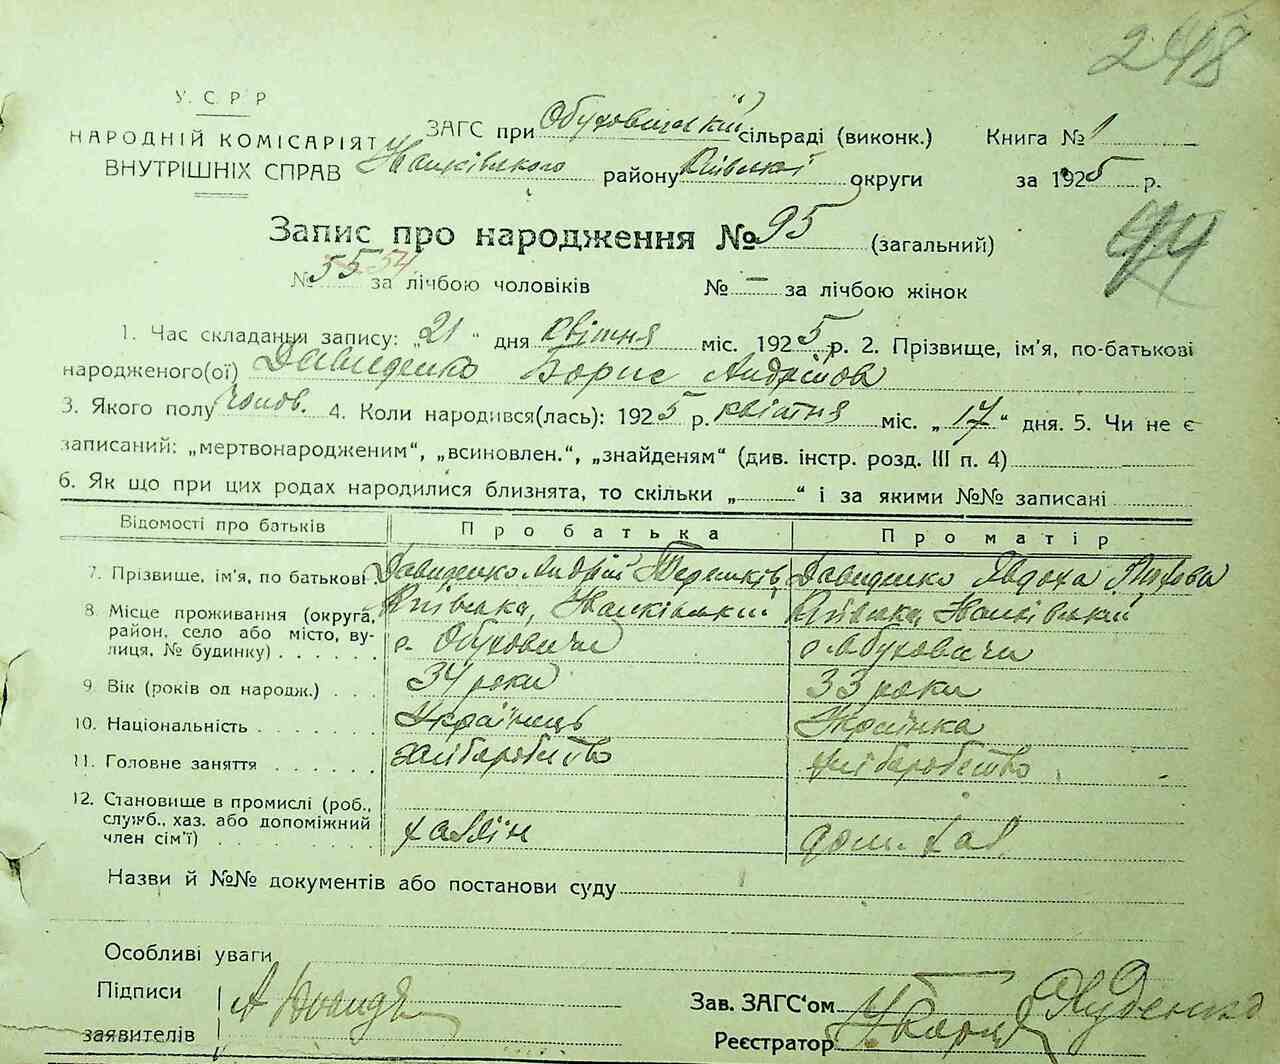 248
У. С. Р. Р
НАРОДНІЙ КОМІСАРІЯТ
ВНУТРІШНІХ СПРАВ
ЗАГС при Обуховицькій сільраді (виконк.) Книга № 1
району Київської округи за 1925 р.
Запис про народження № 95 (загальний)
94
№ 55 54 за лічбою чоловіків № — за лічбою жінок
1. Час складання запису: „21“ дня квітня міс. 1925 р. 2. Прізвище, ім'я, по-батькові
народженого(ої) Давиденко Борис Андріїов
3. Якого полу чолов. 4. Коли народився(лась): 1925 р. квітня міс. „17“ дня. 5. Чи не є
записаний: „мертвонародженим“, „всиновлен.“, „знайденям“ (див. інстр. розд. III п. 4)
6. Як що при цих родах народилися близнята, то скільки „ “ і за якими №№ записані
Відомості про батьків Про батька Про матір
7. Прізвище, ім'я, по батькові Давиденко Андрій Давиденко Явдоха
8. Місце проживання (округа, район, село або місто, вулиця, № будинку) Київська, с. Обуховичи Київська, с. Обуховичи
9. Вік (років од народж.) 34 роки 33 роки
10. Національність Українець Українка
11. Головне заняття хліборобство хліборобство
12. Становище в промислі (роб., служб., хаз. або допоміжний член сім'ї) хазяїн доп. хаз
Назви й №№ документів або постанови суду
Особливі уваги
Підписи
заявителів
Зав. ЗАГС'ом
Реєстратор